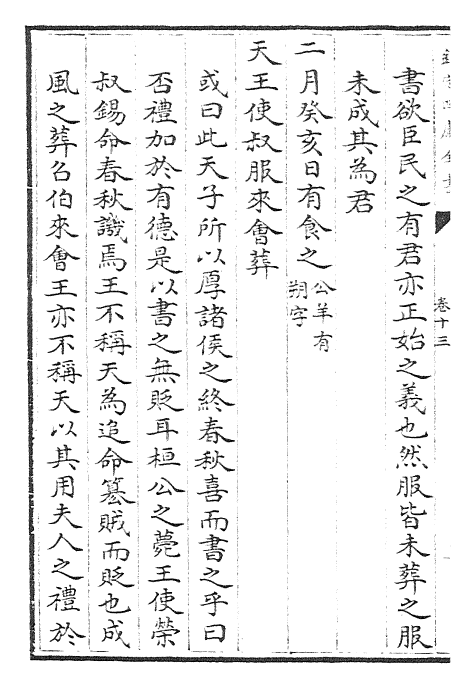 卷十三
書欲臣民之有君亦正始之義也然服皆未葬之服
未成其為君
二月癸亥日有食之公羊有朔字
天王使叔服來會葬
或曰此天子所以厚諸侯之終春秋喜而書之乎曰
否禮加於有德是以書之無貶耳桓公之薨王使榮
叔錫命春秋譏焉王不稱天為追命簒賊而貶也成
風之葬召伯來會王亦不稱天以其用夫人之禮於